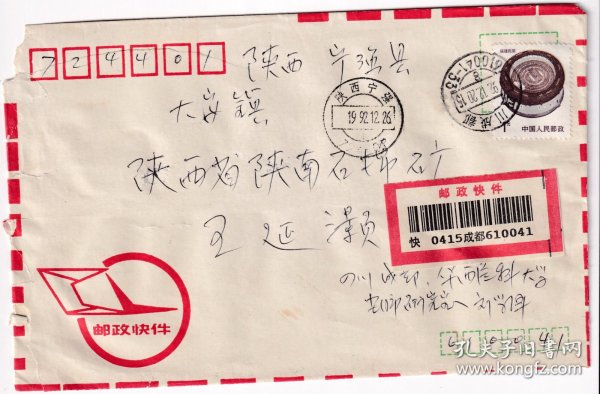 724401 陕西 宁强县
大安镇
陕西省陕南石棉矿
王延灏
陕西宁强
1992.12.26
四川成都
610041-33
福建民居
1
中国人民邮政
邮政快件
快 0415成都610041
四川成都，华西医科大学
610041
邮政快件
孔夫子旧书网
www.kongfz.com